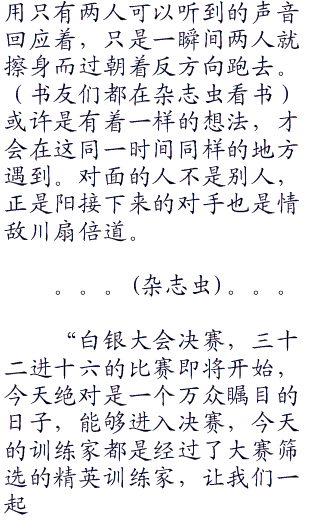 用只有两人可以听到的声音
回应着，只是一瞬间两人就
擦身而过朝着反方向跑去。
（书友们都在杂志虫看书）
或许是有着一样的想法，才
会在这同一时间同样的地方
遇到。对面的人不是别人，
正是阳接下来的对手也是情
敌川扇倍道。
。。。(杂志虫)。。。
“白银大会决赛，三十
二进十六的比赛即将开始，
今天绝对是一个万众瞩目的
日子，能够进入决赛，今天
的训练家都是经过了大赛筛
选的精英训练家，让我们一
起